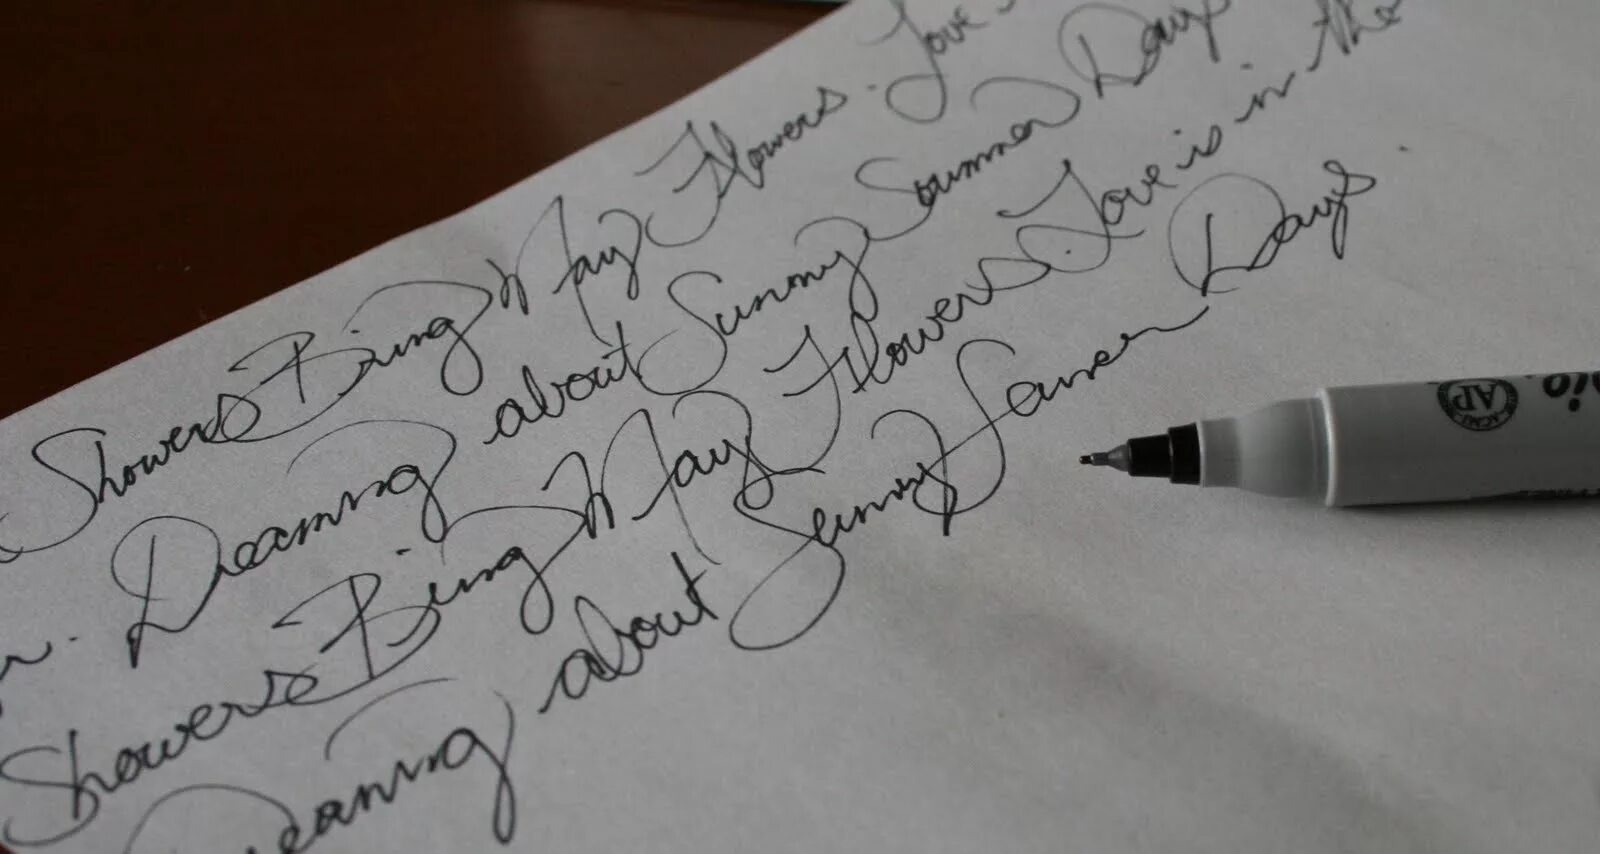 Showers Bring May Flowers. Love
Dreaming about Sunny Summer Days
Showers Bring May Flowers. Love is in the
Dreaming about Sunny Days.
AP